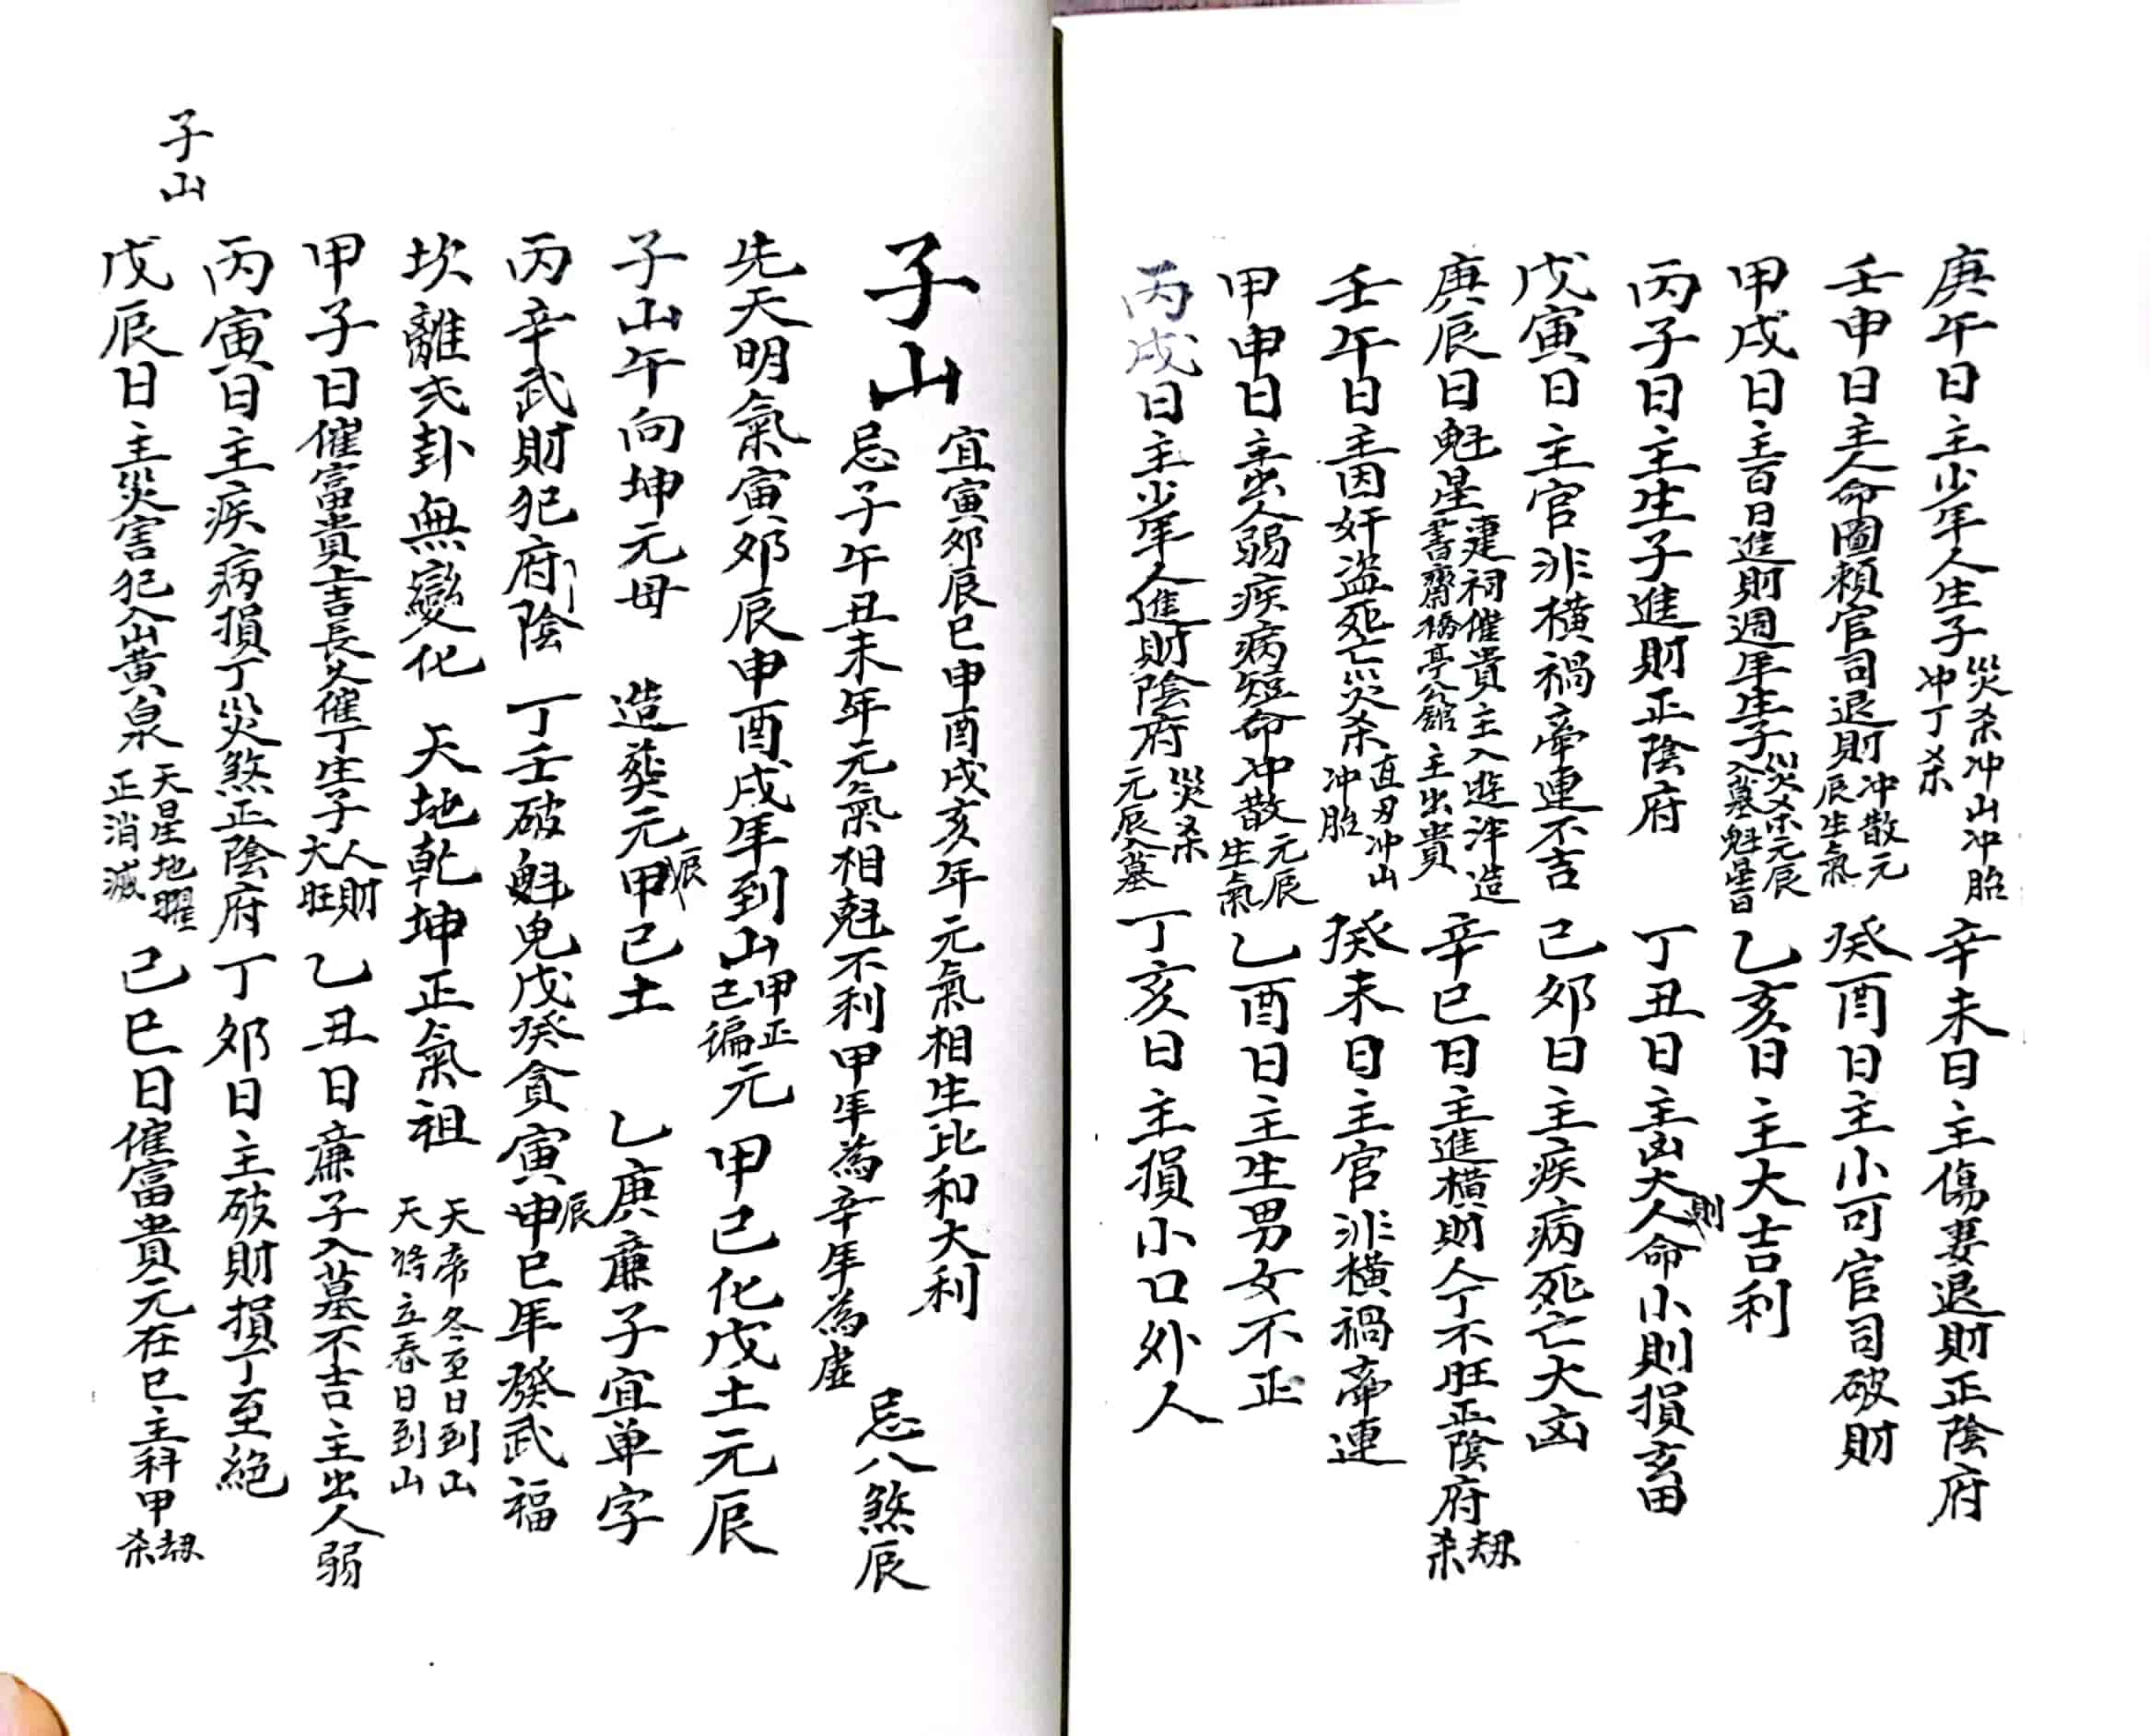 庚午日主少年人生子災杀冲山冲胎冲丁杀 辛未日主傷妻退財正陰府
壬申日主人命圖賴官司退財冲散元辰生氣 癸酉日主小可官司破財
甲戌日主百日進財週年生子災杀元辰入墓魁星日 乙亥日主大吉利
丙子日主生子進財正陰府 丁丑日主凶大則人命小則損畜
戊寅日主官非橫禍牽連不吉 己卯日主疾病死亡大凶
庚辰日魁星建祠催貴主入遊泮造書齋橋亭公館主出貴 辛巳日主進橫財人丁不旺正陰府刼杀
壬午日主因奸盜死亡災杀直刃冲山冲胎 癸未日主官非橫禍牽連
甲申日主出人弱疾病短命冲散元辰生氣 乙酉日主生男女不正
丙戌日主少年人進財陰府災杀元辰入墓 丁亥日主損小口外人
子山
宜寅卯辰巳申酉戌亥年元氣相生比和大利
忌子午丑未年元氣相尅不利甲年為辛年為虛 忌八煞辰
先天明氣寅卯辰申酉戌年到山甲正己徧元 甲己化戊土元辰
子山午向坤元母 造葬元辰甲己土 乙庚廉子宜单字
丙辛武財犯府陰 丁壬破魁鬼戊癸貪寅申辰巳年發武福
坎離弍卦無變化 天地乾坤正氣祖 天帝冬至日到山天将立春日到山
甲子日催富貴上吉長久催丁生子人財大旺 乙丑日廉子入墓不吉主出人弱
丙寅日主疾病損丁災煞正陰府 丁卯日主破財損丁至絕
戊辰日主災害犯入山黄泉天星地曜正消滅 己巳日催富貴元在巳主科甲刼杀
子山